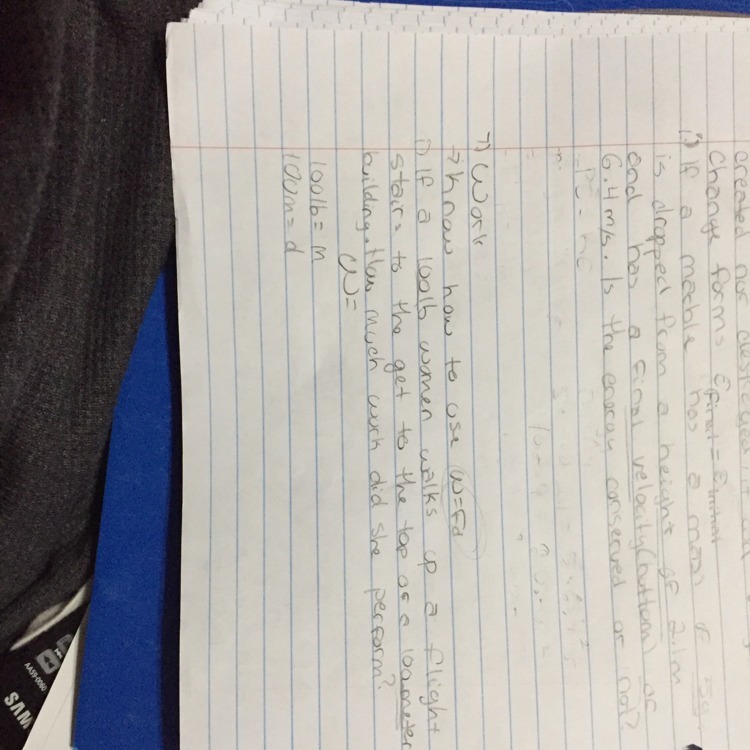 created nor destroyed
change forms Efinal = Einitial
1.) If a marble has a mass of 5g
is dropped from a height of 2.1m
and has a final velocity (bottom) of
6.4 m/s. Is the energy conserved or not?
7) Work
→ Know how to use W=Fd
1) If a 100lb women walks up a flight
stairs to the get to the top of a 100 meter
building. How much work did she perform?
W=
100lb = m
100m = d
AA59-0060
SAM